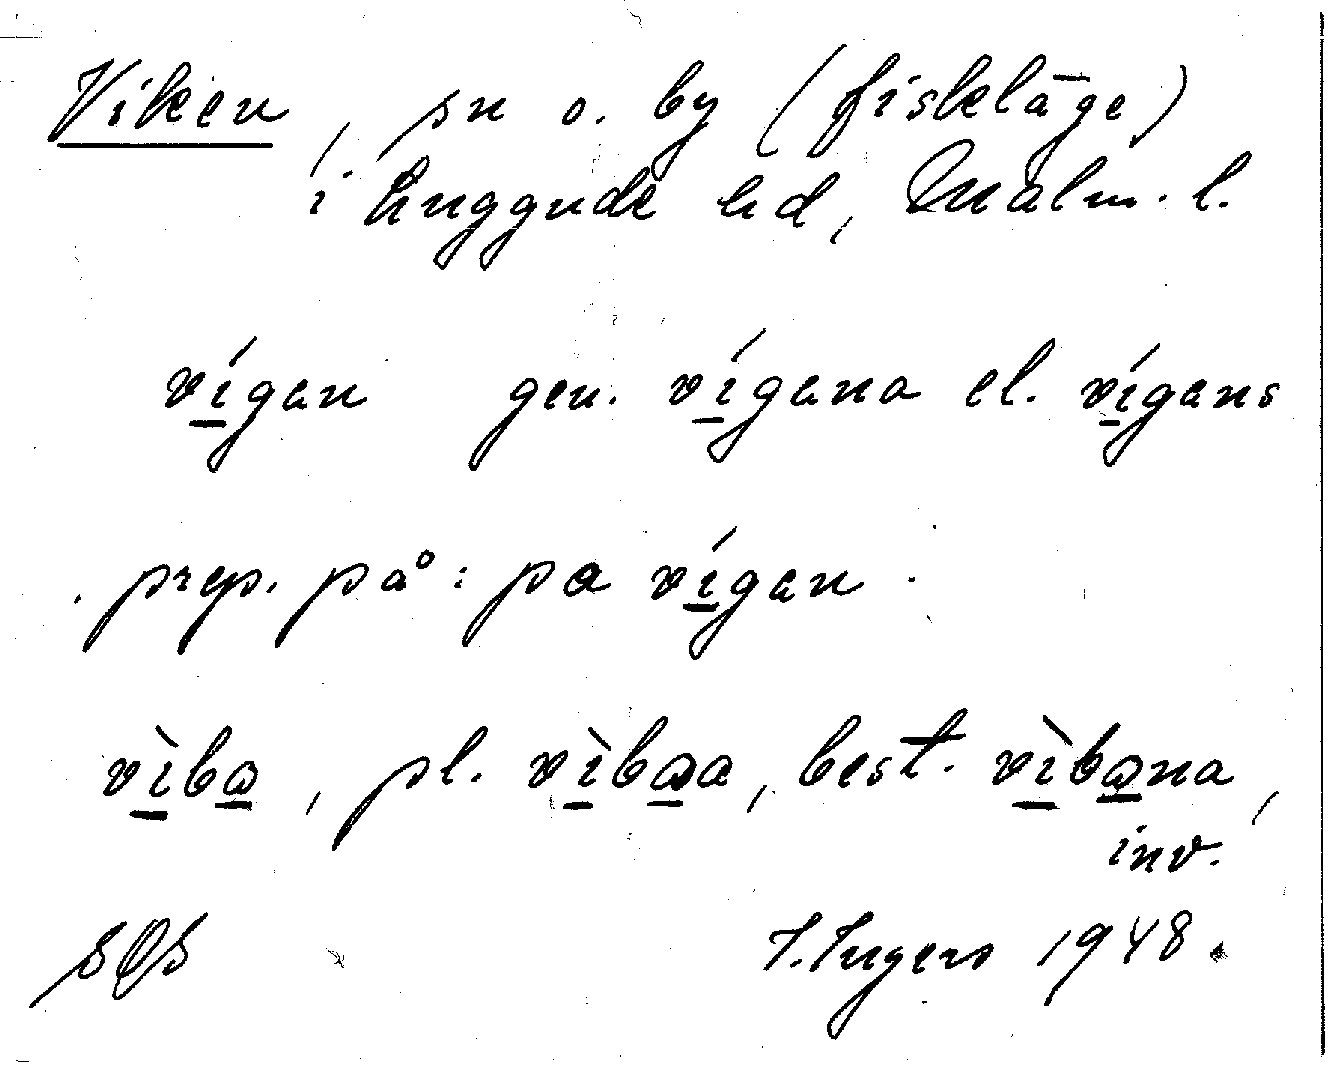 Viken, sn o. by (fiskeläge)
i Luggude hd, Malm. l.
vígan gen. vígana el. vígans
prep. på: pa vígan.
vìba, pl. vìbaa, best. vìbana,
inv.
SOS I. Ingers 1948.